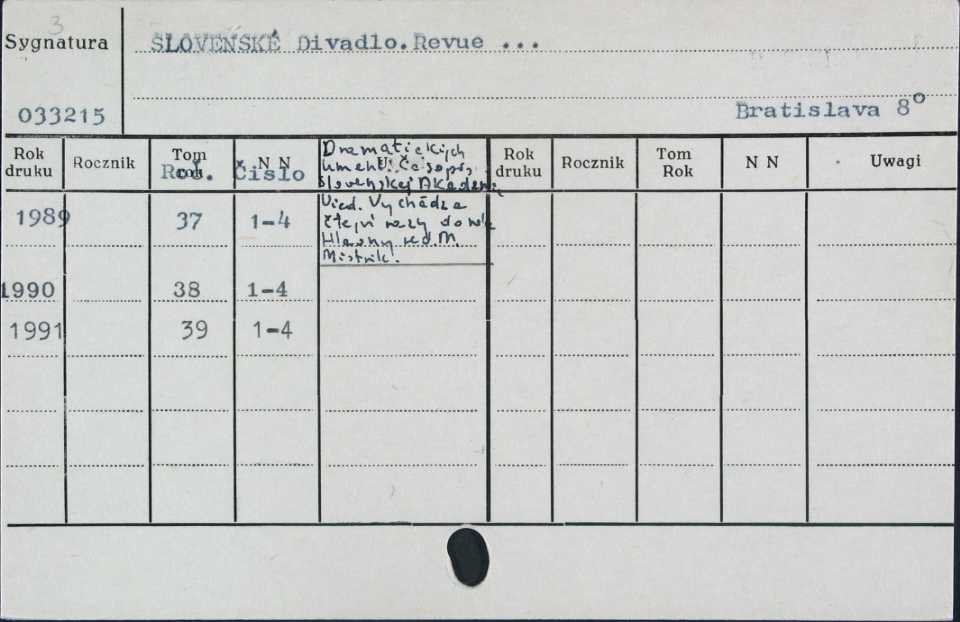 3
Sygnatura SLOVENSKÉ Divadlo.Revue ...
033215 Bratislava 8°
Rok druku Rocznik Tom Rok Roč. N N Číslo Rok druku Rocznik Tom Rok N N Uwagi
Dramatických
umení. Časopis
Slovenskej Akadémie
Vied. Vychádza
razy do roka
Hlavný red. M.
Mistrík.
1989 37 1-4
1990 38 1-4
1991 39 1-4